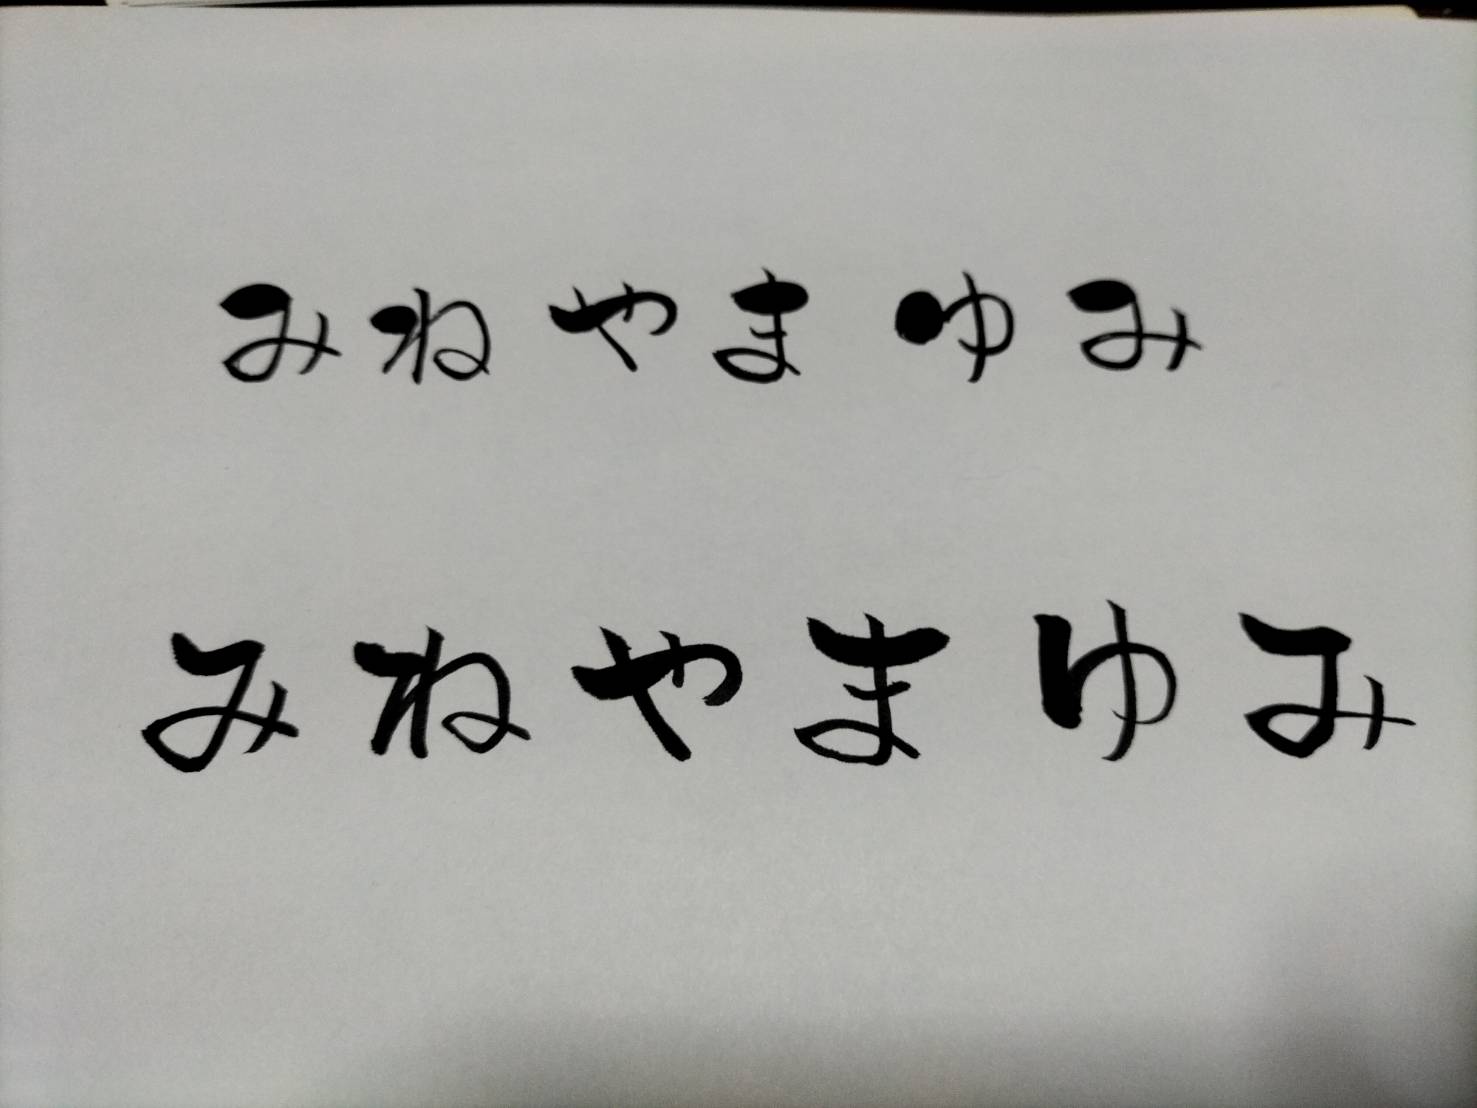 みねやまゆみ
みねやまゆみ